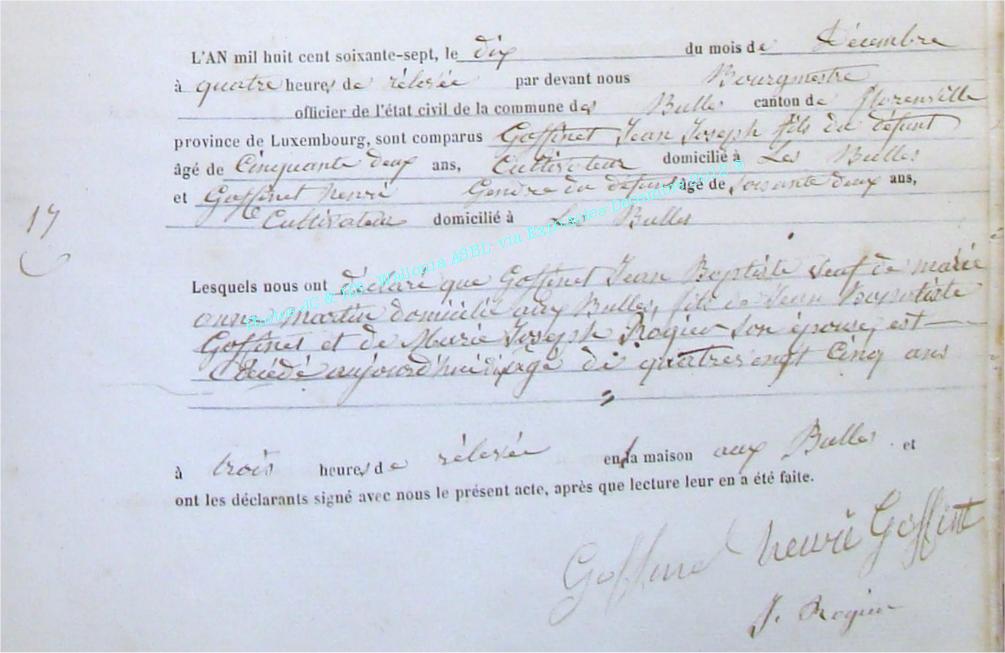 L'AN mil huit cent soixante-sept, le dix du mois de Décembre
à quatre heures de rélevée par devant nous Bourgmestre
officier de l'état civil de la commune des Bulles canton de Florenville
province de Luxembourg, sont comparus Goffinet Jean Joseph fils du défunt
âgé de Cinquante deux ans, Cultivateur domicilié à Les Bulles
et Goffinet henri Gendre du défunt âgé de soixante deux ans,
17
Cultivateur domicilié à Les Bulles
Lesquels nous ont déclaré que Goffinet Jean Baptiste veuf de marie
anne martin domicilié aux Bulles, fils de Jean Baptiste
Goffinet et de Marie Joseph Rogier son épouse, est
décédé aujourd'hui dix agé de quatrevengt Cinq ans
à trois heures de rélevée en la maison aux Bulles et
ont les déclarants signé avec nous le présent acte, après que lecture leur en a été faite.
Goffinet henri Goffinet
J. Rogier